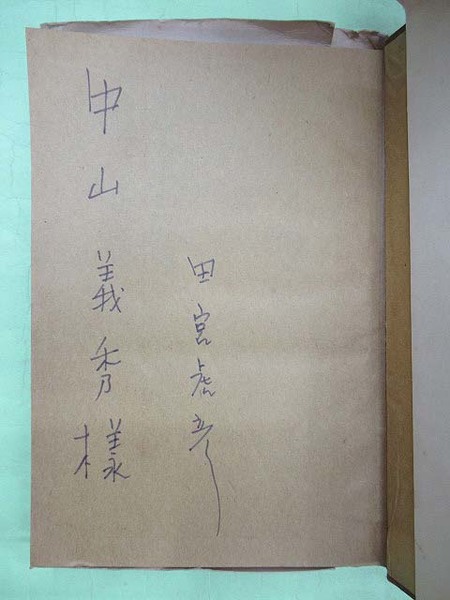 田宮虎彦
中山義秀樣